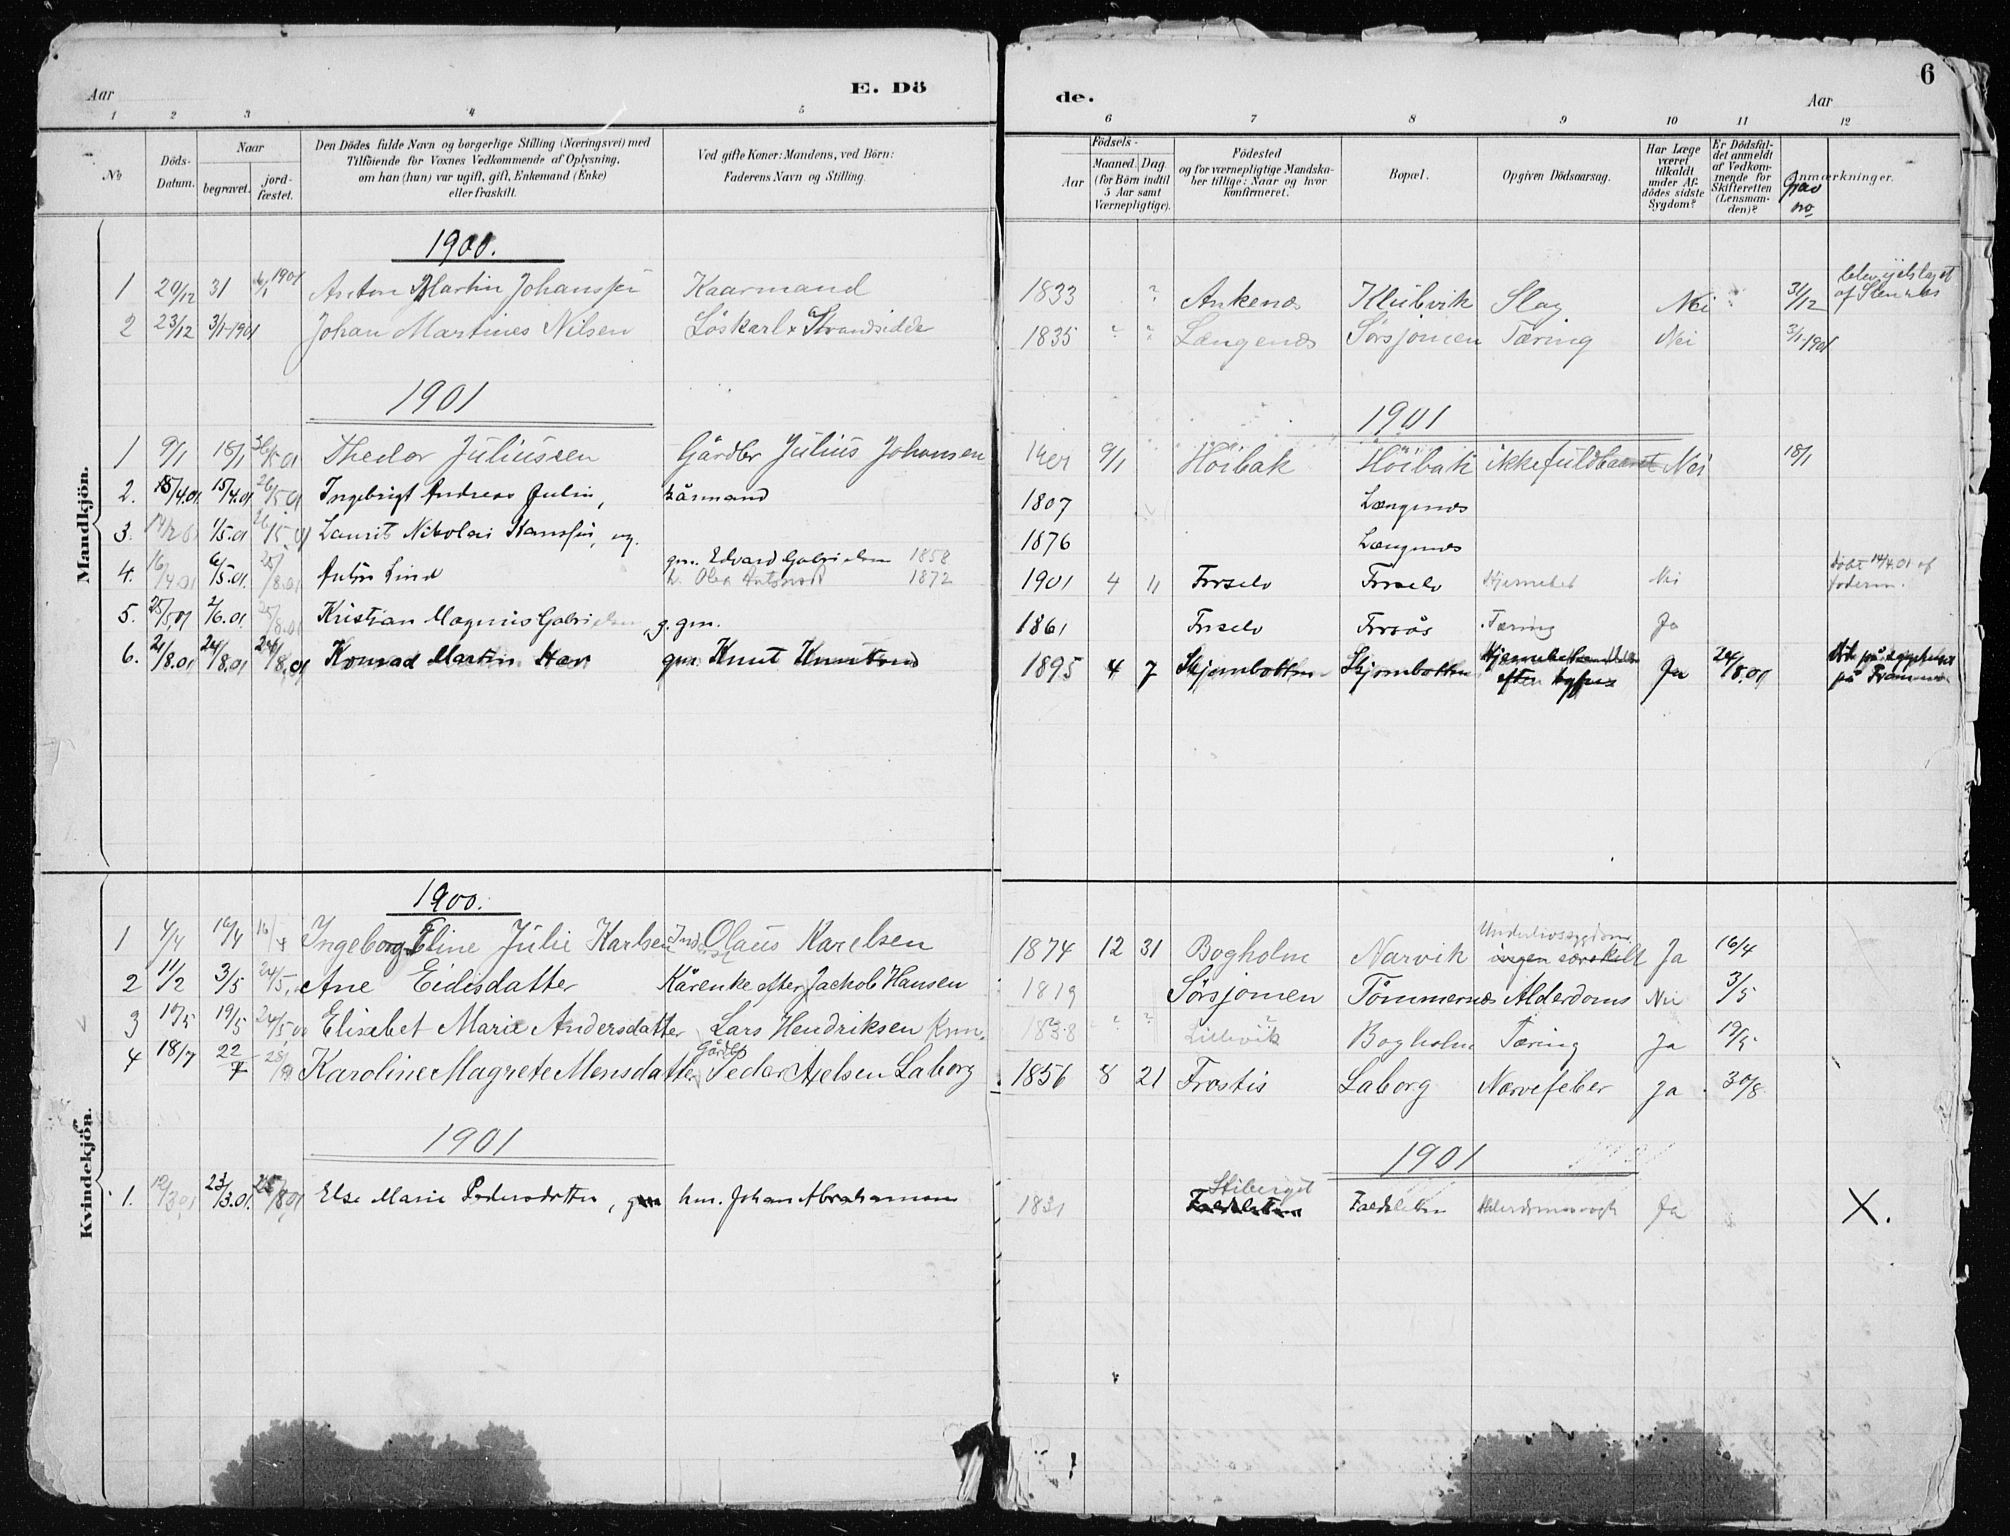 Aar E. Dö de. Aar 6
1 2 3 4 5 6 7 8 9 10 11 12
No
Döds-Datum.
Naar
begravet. jord-fæstet.
Den Dödes fulde Navn og borgerlige Stilling (Næringsvei) med
Tilføiende for Voxnes Vedkommende af Oplysning,
om han (hun) var ugift, gift, Enkemand (Enke)
eller fraskilt.
Ved gifte Koner: Mandens, ved Börn:
Faderens Navn og Stilling.
Födsels-
Aar Maaned. Dag.
(for Börn indtil
5 Aar samt
Værnepligtige).
Födested
og for værnepligtige Mandska-
ber tillige: Naar og hvor
konfirmeret.
Bopæl.
Opgiven Dödsaarsag.
Har Læge
været
tilkaldt
under Af-
dödes sidste
Sygdom?
Er Dödsfal-
det anmeldt
af Vedkom-
mende for
Skifteretten
(Lensman-
den)?
Anmærkninger.
Grav no
Mandkjön.
1900.
1 29/12 31 6/1 1901 Anton Martin Johanssen Kaarmand 1833 " Ankenes Klubvik Slag Nei 31/12
2 23/12 3/1-1901 Johan Martines Nilsen Löskarl x Strandsidde 1835 " " Længenes Sörsjomen Tæring Nei 3/1-1901
1901 1901
1 9/1 18/1 Thedor Juliussen Gårdbr Julius Johansen 9/1 Höibak Höibak ikkefuldbaaret Nei 18/1
2. 15/4.01 26/5.01 Ingebrigt Andreas Julin, kårmand 1807 Længenes
3. 1/5.01 26/5.01 Laurits Nikolai Hanssen, ug. 1876 Længenes
4. 16/4.01 6/5.01 25/8.01 Anton Lind gm. Edvard Gabrielsen 1858
h. Olea Antonsdt 1872 1901 4 11 Forselv Forselv Hjernebet Nei Döbt 14/4.01 af
5. 25/5.01 2/6.01 25/8.01 Kristian Magnus Gabrielsen, g. gm. 1861 Forselv Forsås Tæring Ja
6. 21/8.01 24/8.01 24/8.01 Konrad Martin gm. Knut Knutsen 1895 4 7 Skjombotten Skjombotten efter tyfus Ja 24/8.01
Kvindekjön.
1900.
1 4/4 16/4 Ingeborg Eline Julie Karlsen Olaus Karelsen 1874 12 31 Bogholm Narvik Underlivssygdom
ingen særskilt Ja 16/4
2 11/2 3/5 24/5. Ane Eidisdatter Kårenke efter Jachob Hansen 1819 Sörsjomen Tömmernes Alderdoms Nei 3/5
3 10/5 19/5 24/5.00 Elisabet Marie Andersdatter Lars Hendriksen Knm. 1838 " " Lillevik Bogholm Tæring Ja 19/5
4 18/7 22/7 Karoline Magrete Monsdatter Gårdbr
Peder Axelsen Laborg 1856 8 21 Frostis Laborg Narvefeber Ja 30/8
1901 1901
1. 23/3.01 25/8.01 Else Marie Pedersdatter, hm. Johan Abrahamsen 1831 Stiberget
Ja X.